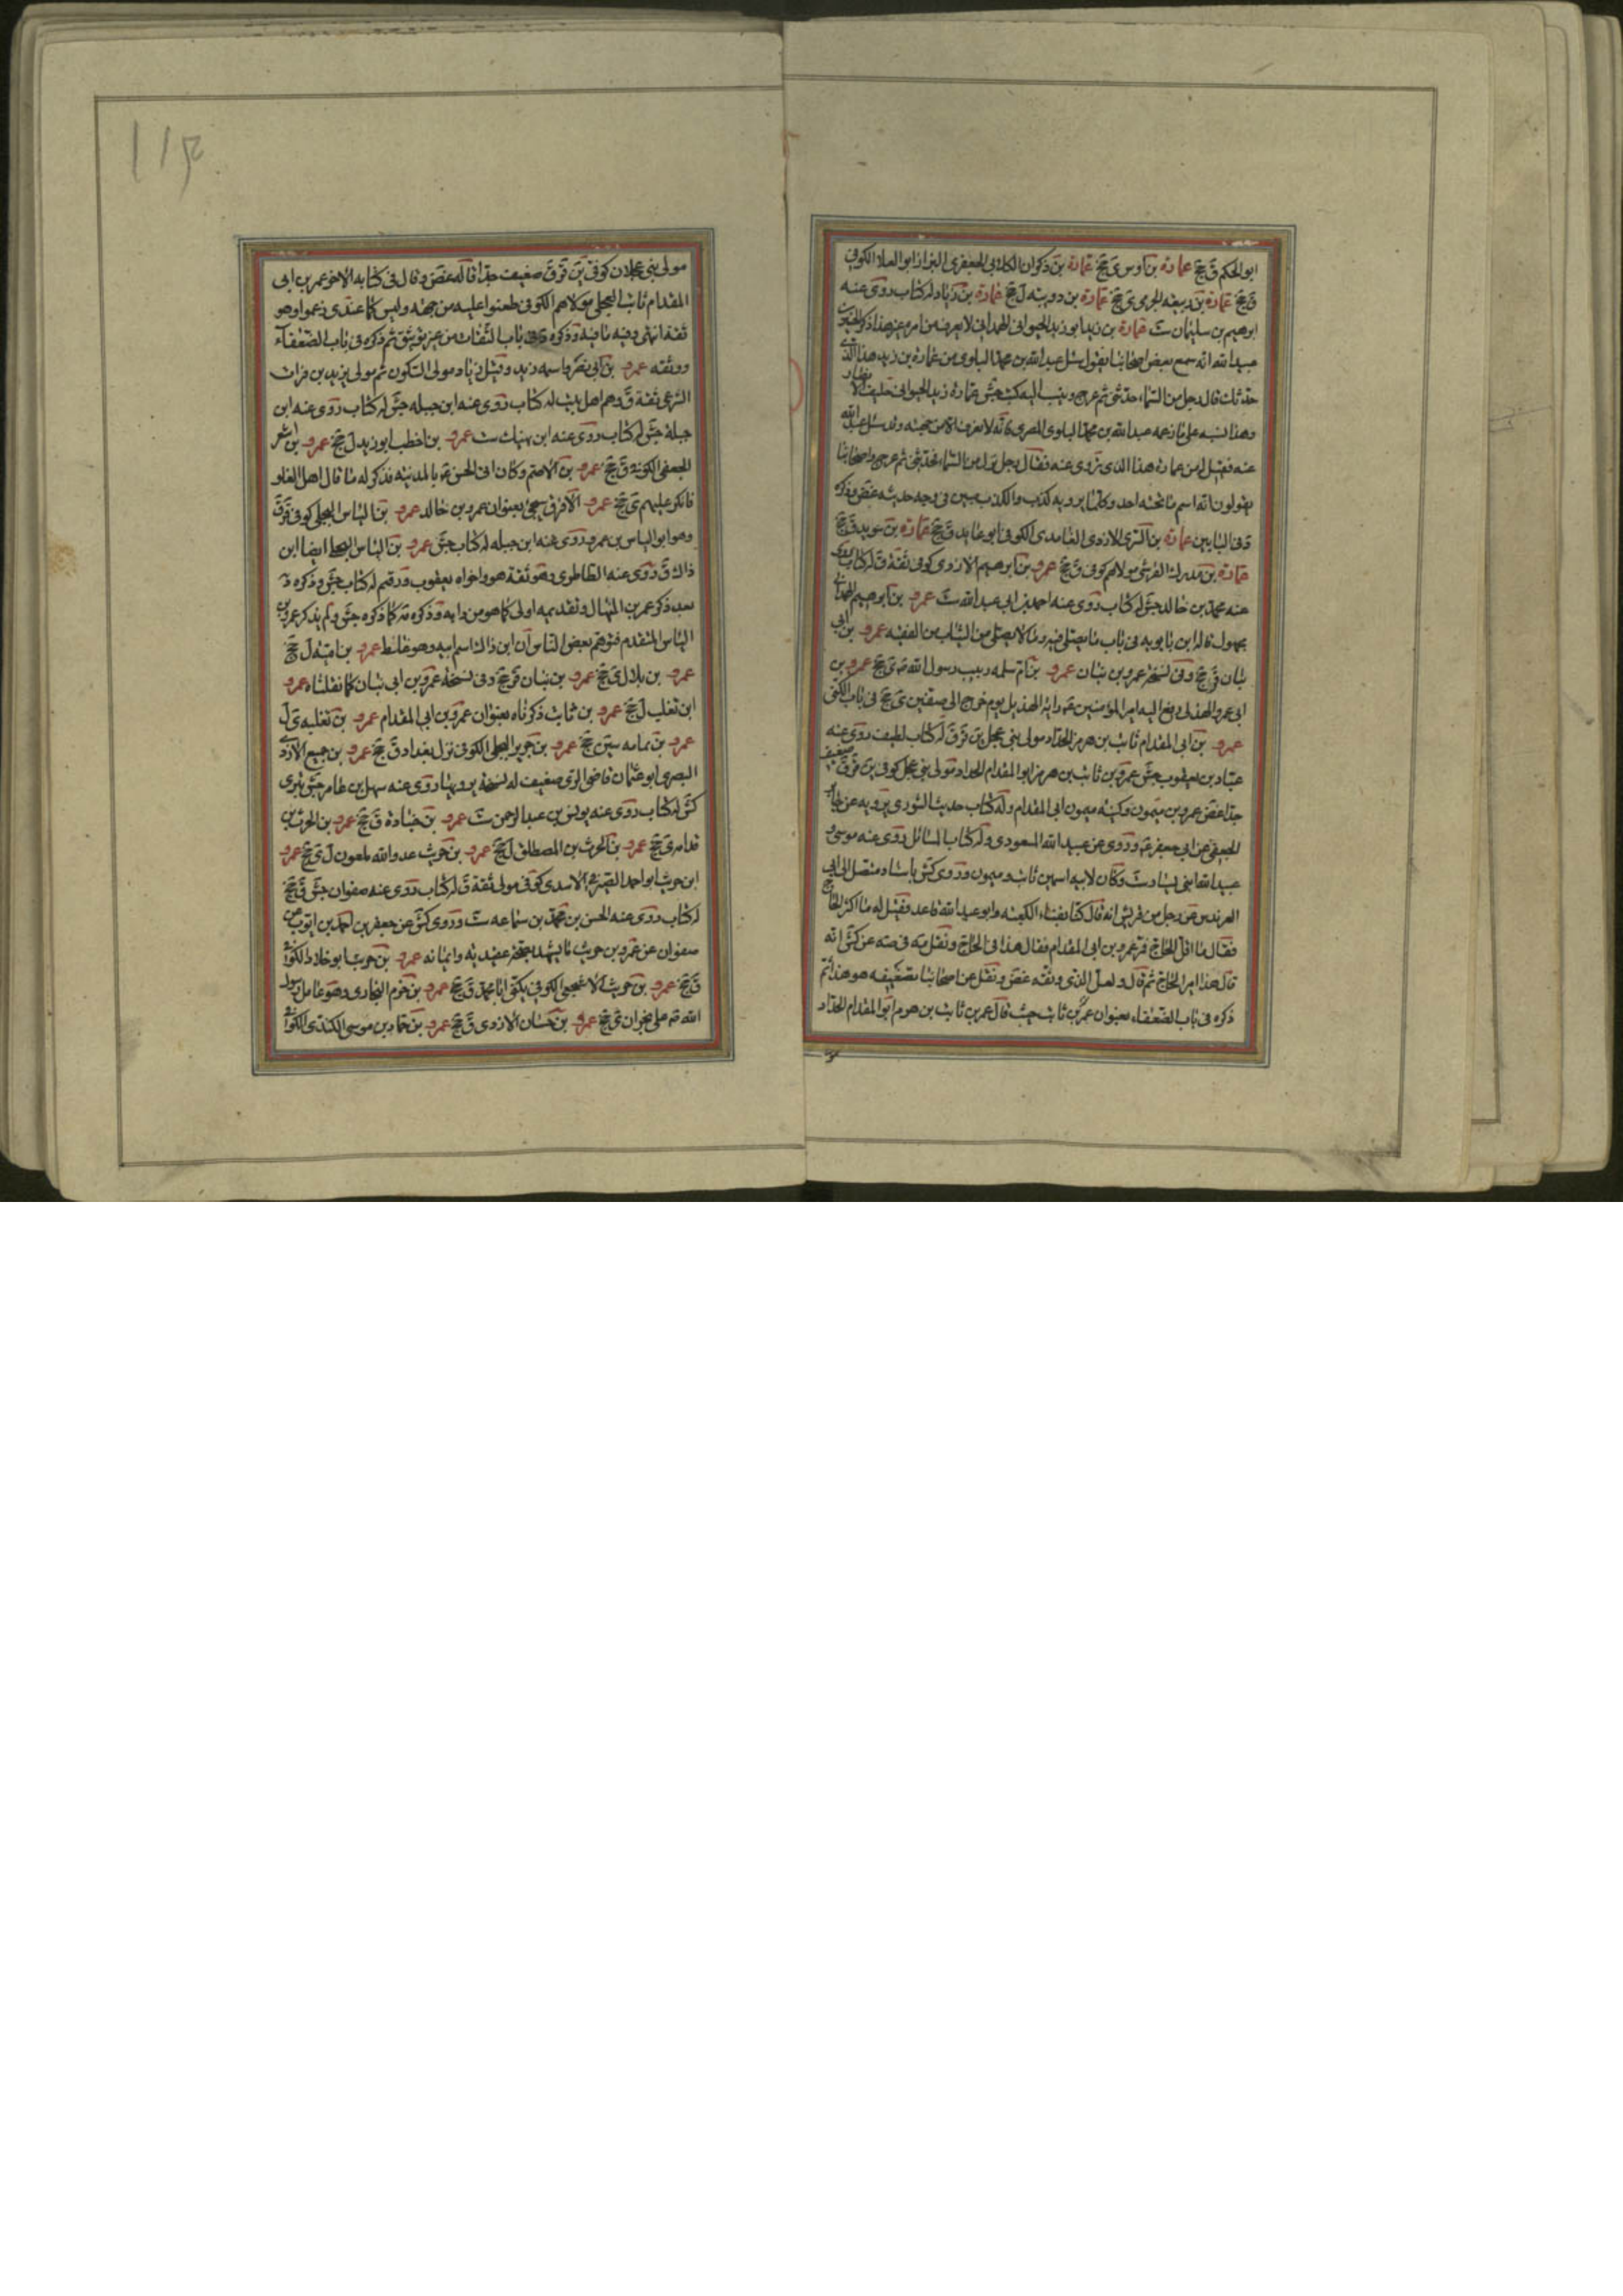 ابو الحكم ق جخ عمارة بن اوس ى جخ عمارة بن ذكوان الكلابي الجعفري البزاز ابو العلا الكوفي
ق جخ عمارة بن ربيعة الجرمي ى جخ عمارة بن رويبه ل جخ عمارة بن زياد له كتاب روى عنه
ابرهيم بن سليمان ست عمارة بن زيد ابو زيد الخيواني الهمداني لا يعرف من امره غير هذا ذكر الحسين بن
عبيد الله انه سمع بعض اصحابنا يقول سئل عبد الله بن محمد البلوي من عمارة بن زيد هذا الذي
حدثك قال رجل من السماء حدثني ثم عرج وينسب اليه كتب جش عمارة زيد الخيواني حليف الانصار
وهذا نسبه على ما زعمه عبد الله بن محمد البلوي المصري فانه لا يعرف الا من جهته وقد سئل عبد الله
عنه فقيل له من عمارة هذا الذي تروى عنه فقال رجل نزل من السماء فحدثني ثم عرج واصحابنا
يقولون انه اسم ما تحته احد وكلما يرويه كذب والكذب مبين في وجه حديثه غض وذكره
د في البابين عمارة بن السري الازدي الغامدي الكوفي ابو عايد ق جخ عمارة بن سويد ق جخ
عمارة بن مدرك القرشي مولاهم كوفي ق جخ عمرو بن ابرهيم الازدي كوفي ثقة ق له كتاب روى
عنه محمد بن خالد جش له كتاب روى عنه احمد بن ابي عبد الله ست عمرو بن ابرهيم الهمداني
مجهول قاله ابن بابويه في باب ما يصلي فيه وما لا يصلي من الثياب من الفقيه عمرو بن ابي
بنان ق جخ وفى نسخة عمرو بن بنان عمرو بن ام سلمه ربيب رسول الله ى جخ عمرو بن
ابي عمرو الهذلي دفع اليه امير المؤمنين راية الهذيل يوم خرج الى صفين ى جخ في باب الكنى
عمرو بن ابي المقدام ثابت بن هرمز الحداد مولى بني عجل ين قر ق له كتاب لطيف روى عنه
عباد بن يعقوب جش عمرو بن ثابت بن هرمز ابو المقدام الحداد مولى بني عجل كوفي ين قر ق ضعيف
جدا غض عمرو بن ميمون وكنيه ميمون ابي المقدام وله كتاب حديث الشورى يرويه عن جابر
الجعفي عن ابي جعفر وروى عن عبيد الله المسعودي وله كتاب المسائل روى عنه موسى و
عبيد الله ابنى يسار ست وكان لابيه اسمين ثابت وميمون وروى كش باسناد متصل الى ابي
العرندس عن رجل من قريش انه قال كنا بفناء الكعبه وابو عبد الله قاعد فقيل له ما اكثر الحاج
فقال ما اقل الحاج فمر عمرو بن ابي المقدام فقال هذا من الحاج ونقل في صه عن كش انه
قال هذا امير الحاج ثم قال ولعل الذي وثقه غض ونقل عن اصحابنا تضعيفه هو هذا ثم
ذكره في باب الضعفاء بعنوان عمر بن ثابت حيث قال عمر بن ثابت بن هرم ابو المقدام الحداد
مو
١١٤
مولى بني عجلان كوفي ين قر ق ضعيف جدا قاله غض وقال في كتابه الاخر عمر بن ابي
المقدام ثابت العجلي مولاهم الكوفي طعنوا عليه من جهته وليس كما عندي زعموا وهو
ثقة انتهى وفيه ما فيه وذكره د في باب الثقات من غير توثيق ثم ذكره في باب الضعفاء
ووثقه عمرو بن ابي نصر واسمه زيد وقيل زياد مولى السكون ثم مولى يزيد بن فرات
الشرعي ثقة ق وهم اهل بيت له كتاب روى عنه ابن جبله جش له كتاب روى عنه ابن
جبلة جش له كتاب روى عنه ابن نهيك ست عمرو بن اخطب ابو زيد ل جخ عمرو بن اشعر
الجعفي الكوفي ق جخ عمرو بن الاصم وكان اتى الحسن بالمدينة فذكر له ما قال اهل الغلو
فانكر عليهم ى جخ عمرو الافرق سيجئ بعنوان عمرو بن خالد عمرو بن الياس البجلي كوفي قر ق
وهو ابو الياس بن عمرو روى عنه ابن جبله له كتاب جش عمرو بن الياس البجلي ايضا ابن
ذاك ق روى عنه الطاطري وهو ثقة هو واخواه يعقوب ورقيم له كتاب جش وذكره د
بعد ذكر عمر بن المنهال وتقديمه اولى كما هو من دابه وذكره كما ذكره جش ولم يذكر عمرو بن
الياس المتقدم فتوهم بعض الناس ان ابن ذاك اسم ابيه وهو غلط عمرو بن اميه ل جخ
عمرو بن بلال ى جخ عمرو بن بنان ق جخ وفى نسخة عمرو بن ابي بنان كما نقلناه عمرو
ابن تغلب ل جخ عمرو بن ثابت ذكرناه بعنوان عمرو بن ابي المقدام عمرو بن ثعلبه ى ل
عمرو بن ثمامه سين جخ عمرو بن جرير البجلي الكوفي نزل بغداد ق جخ عمرو بن جميع الازدي
البصري ابو عثمان قاضي الري ضعيف له نسخة يرويها روى عنه سهل بن عامر جش بترى
كش له كتاب روى عنه يونس بن عبد الرحمن ست عمرو بن جنادة ق جخ عمرو بن الحرث بن
قدامه ى جخ عمرو بن الحرث بن المصطلق ل جخ عمرو بن حريث عدو الله ملعون ل ى جخ عمرو
ابن حريث ابو احمد الصيرفي الاسدي كوفي مولى ثقة ق له كتاب روى عنه صفوان جش ق جخ
له كتاب روى عنه الحسن بن محمد بن سماعه ست وروى كش عن جعفر بن احمد بن ايوب عن
صفوان عن عمرو بن حريث ما يشهد بصحة عقيدته وايمانه عمرو بن حريث ابو خلاد الكوفي
ق جخ عمرو بن حريث الاشجعي الكوفي يكنى ابا محمد ق جخ عمرو بن حزم النجاري وهو عامل رسول
الله على نجران ى جخ عمرو بن حسان الازدي ق جخ عمرو بن حماد بن موسى الكندي الكوفي